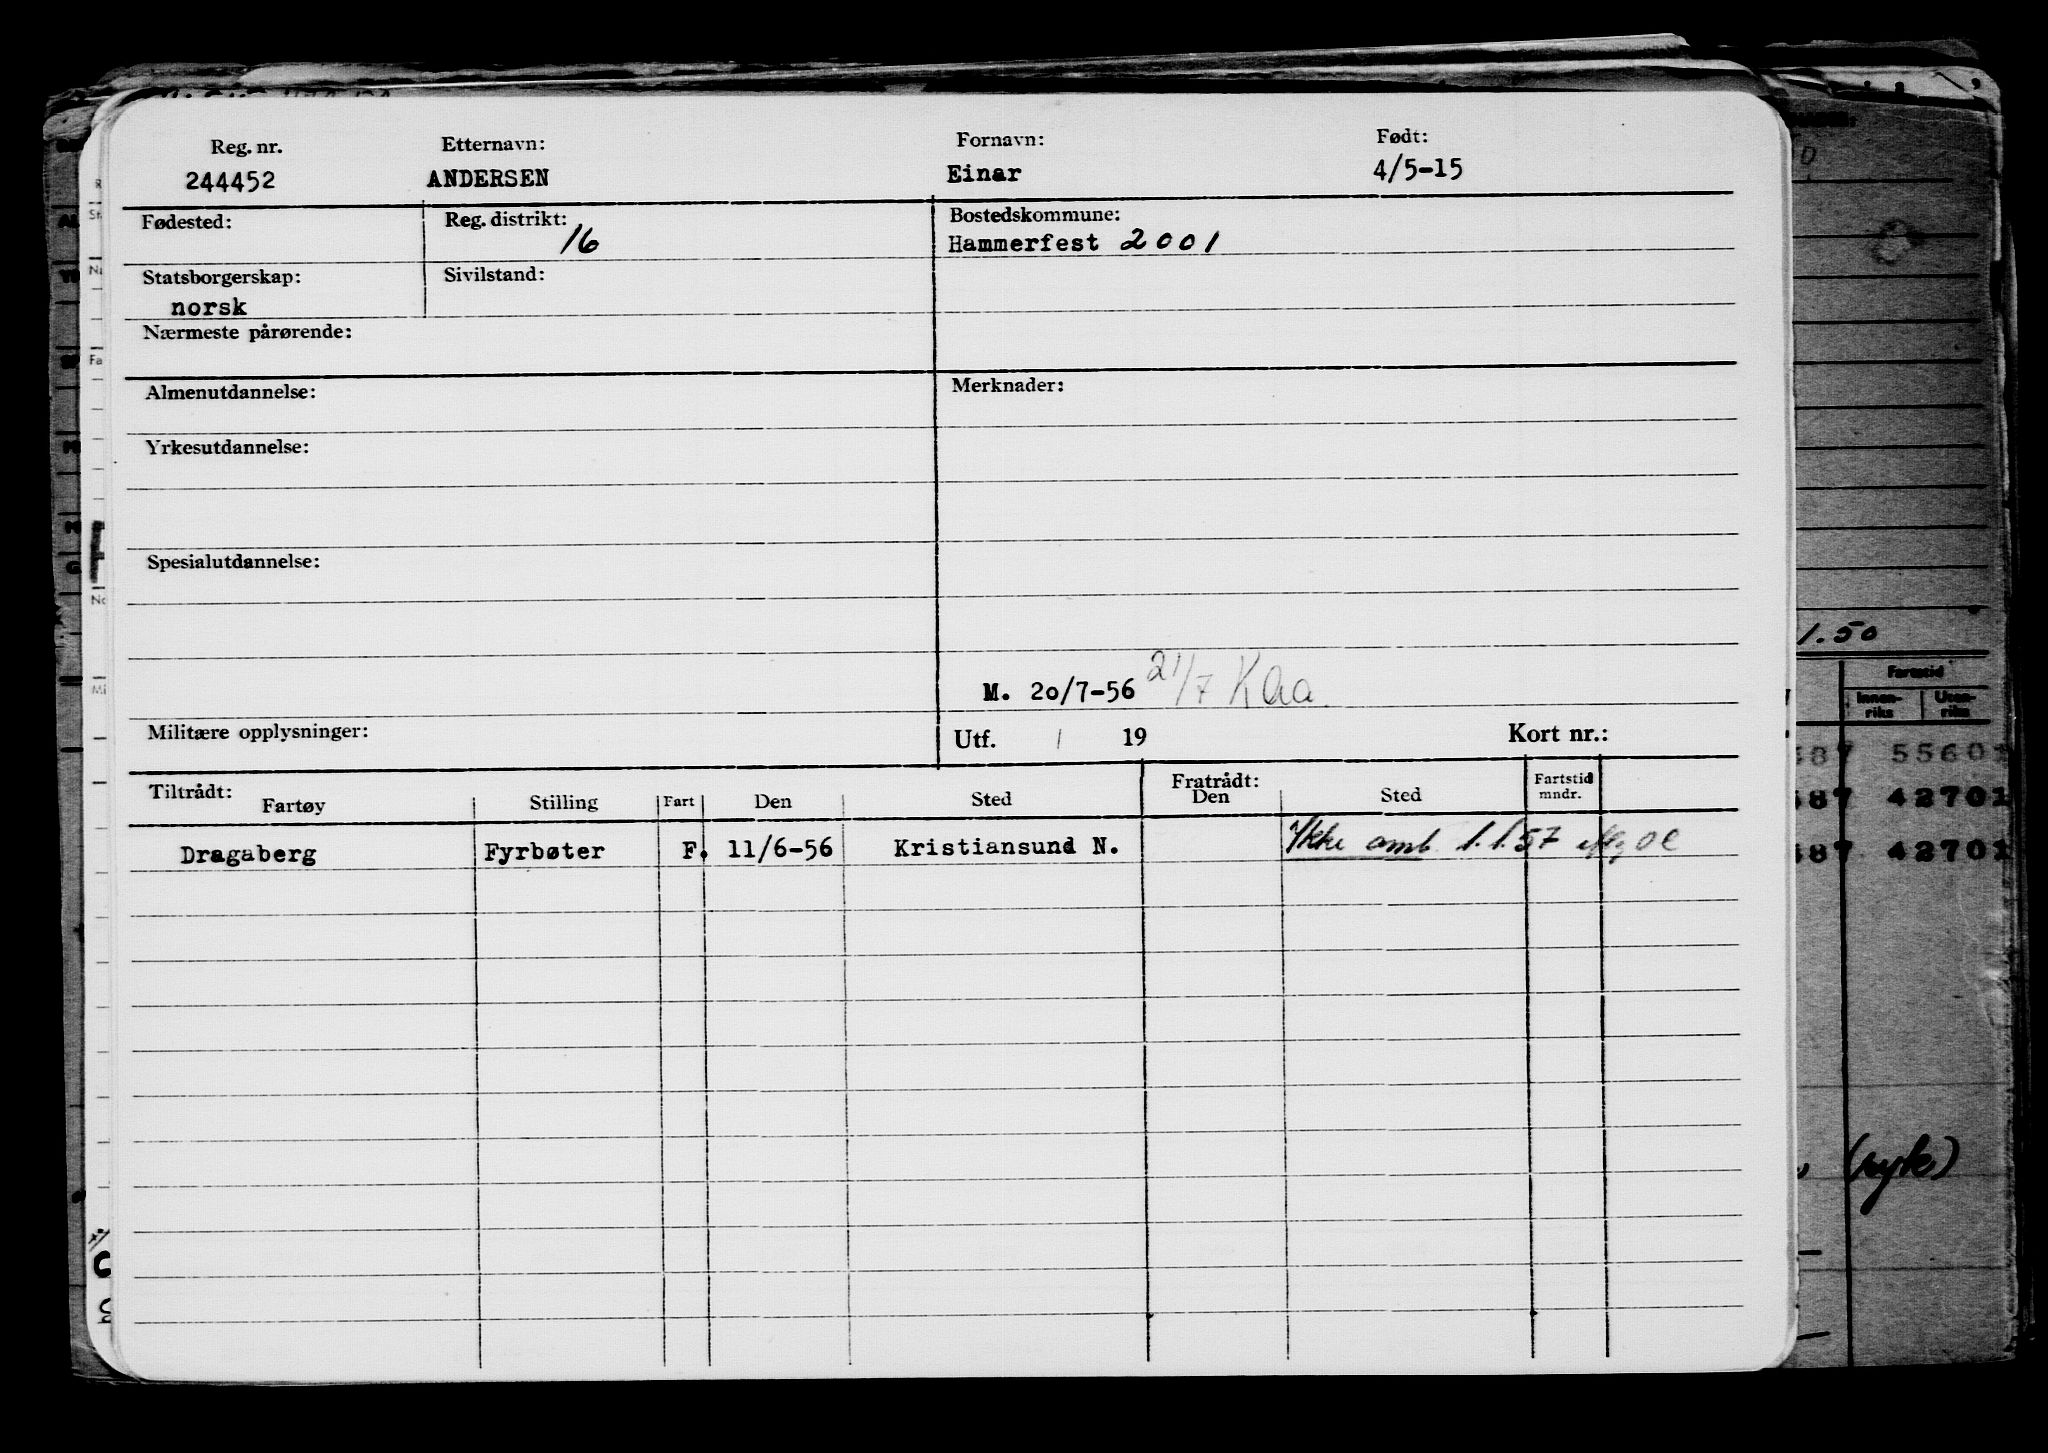 Reg. nr. Etternavn: Fornavn: Født:
244452 ANDERSEN Einar 4/5-15
Fødested: Reg. distrikt: 16 Bostedskommune:
Hammerfest 2001
Statsborgerskap: Sivilstand:
norsk
Nærmeste pårørende:
Almenutdannelse: Merknader:
Yrkesutdannelse:
Spesialutdannelse:
M. 20/7-56 21/7 KAa
Militære opplysninger: Utf. / 19 Kort nr.:
Tiltrådt: Fratrådt: Fartstid
Fartøy Stilling Fart Den Sted Den Sted mndr.
Dragaberg Fyrbøter F. 11/6-56 Kristiansund N. Ikke omb. 1.1.57
1.50
Fartstid
Innen-
riks
Uten-
riks
687 55601
687 42701
687 42701
(syk)